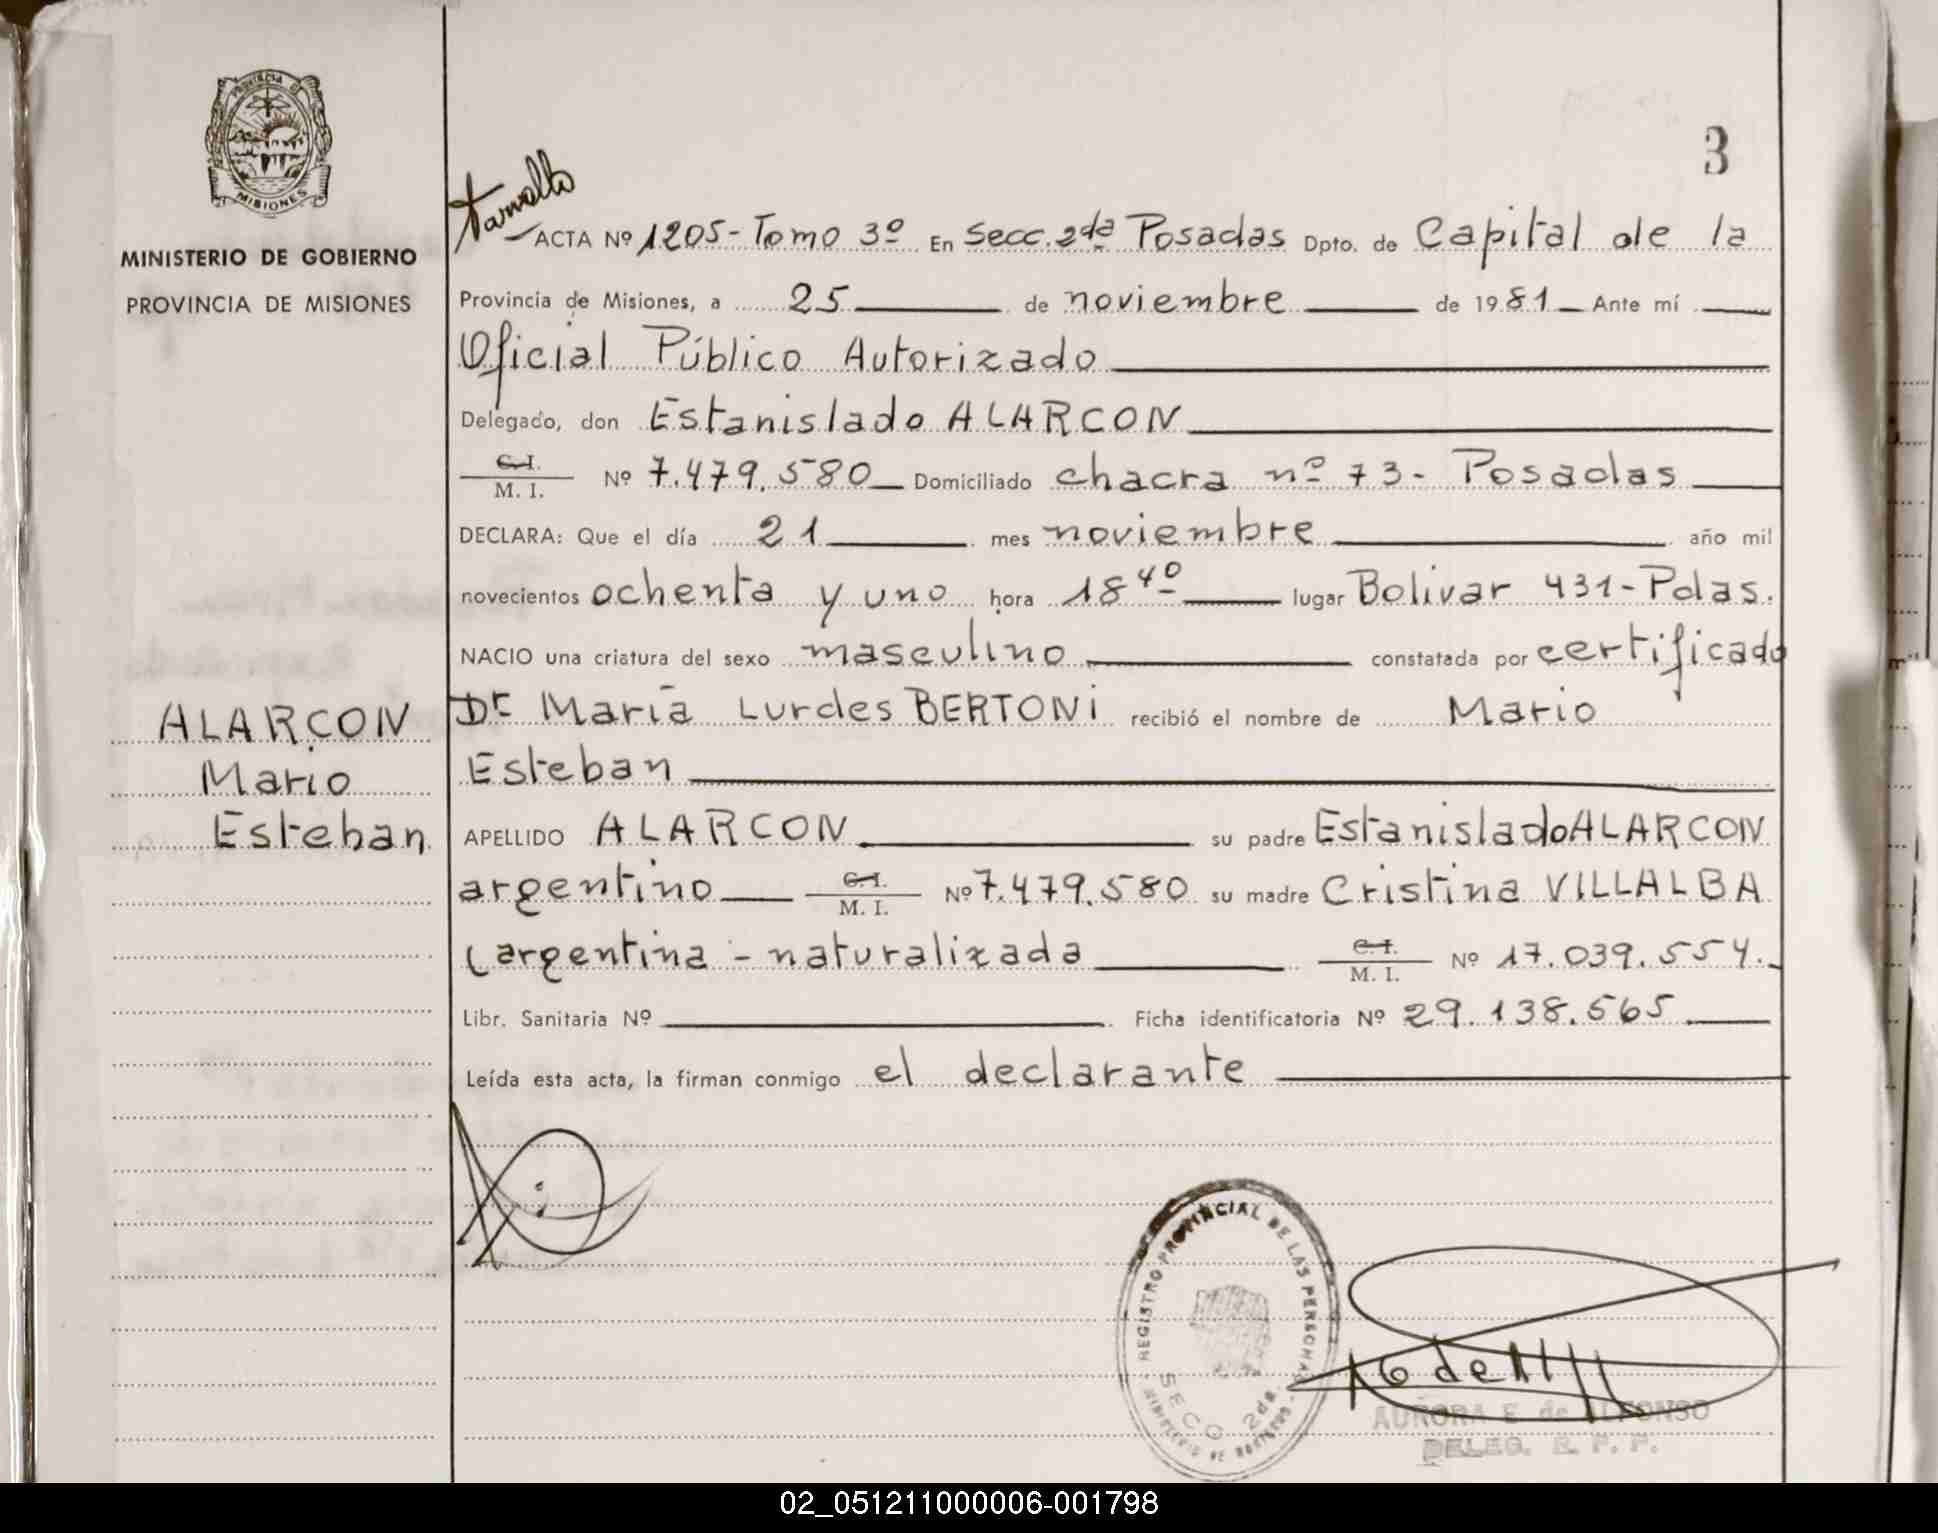 3
PROVINCIA DE
MISIONES
MINISTERIO DE GOBIERNO
PROVINCIA DE MISIONES
ACTA Nº 1205 - Tomo 3º En Secc. 2da Posadas Dpto. de Capital de la
Provincia de Misiones, a 25 de noviembre de 1981 Ante mí
Oficial Público Autorizado
Delegado, don Estanislado ALARCON
C.I.
M. I. Nº 7.479.580 Domiciliado chacra nº 73 - Posadas
DECLARA: Que el día 21 mes noviembre año mil
novecientos ochenta y uno hora 18 40 lugar Bolivar 431 - Pdas.
NACIO una criatura del sexo masculino constatada por certificado
Dr María Lurdes BERTONI recibió el nombre de Mario
Esteban
ALARCON
Mario
Esteban
APELLIDO ALARCON su padre Estanislado ALARCON
argentino C.I.
M. I. Nº 7.479.580 su madre Cristina VILLALBA
argentina - naturalizada C.I.
M. I. Nº 17.039.554.
Libr. Sanitaria Nº Ficha identificatoria Nº 29.138.565
Leída esta acta, la firman conmigo el declarante
REGISTRO PROVINCIAL DE LAS PERSONAS
SECC 2da.
AURORA E. de ALFONSO
DELEG. R. P. P.
02_051211000006-001798